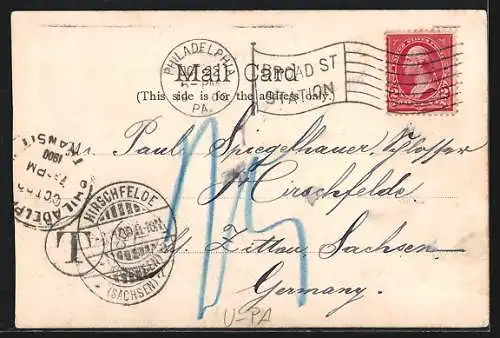 PHILADELPHIA
PA.
BROAD ST
STATION
Mail Card
(This side is for the address only.)
Paul Spiegelhauer, Schlosser
Hirschfelde
Zittau, Sachsen
Germany.
PHILADELPHIA
OCT
PM
1900
TRANSIT
T
HIRSCHFELDE
(SACHSEN)
15
U-PA